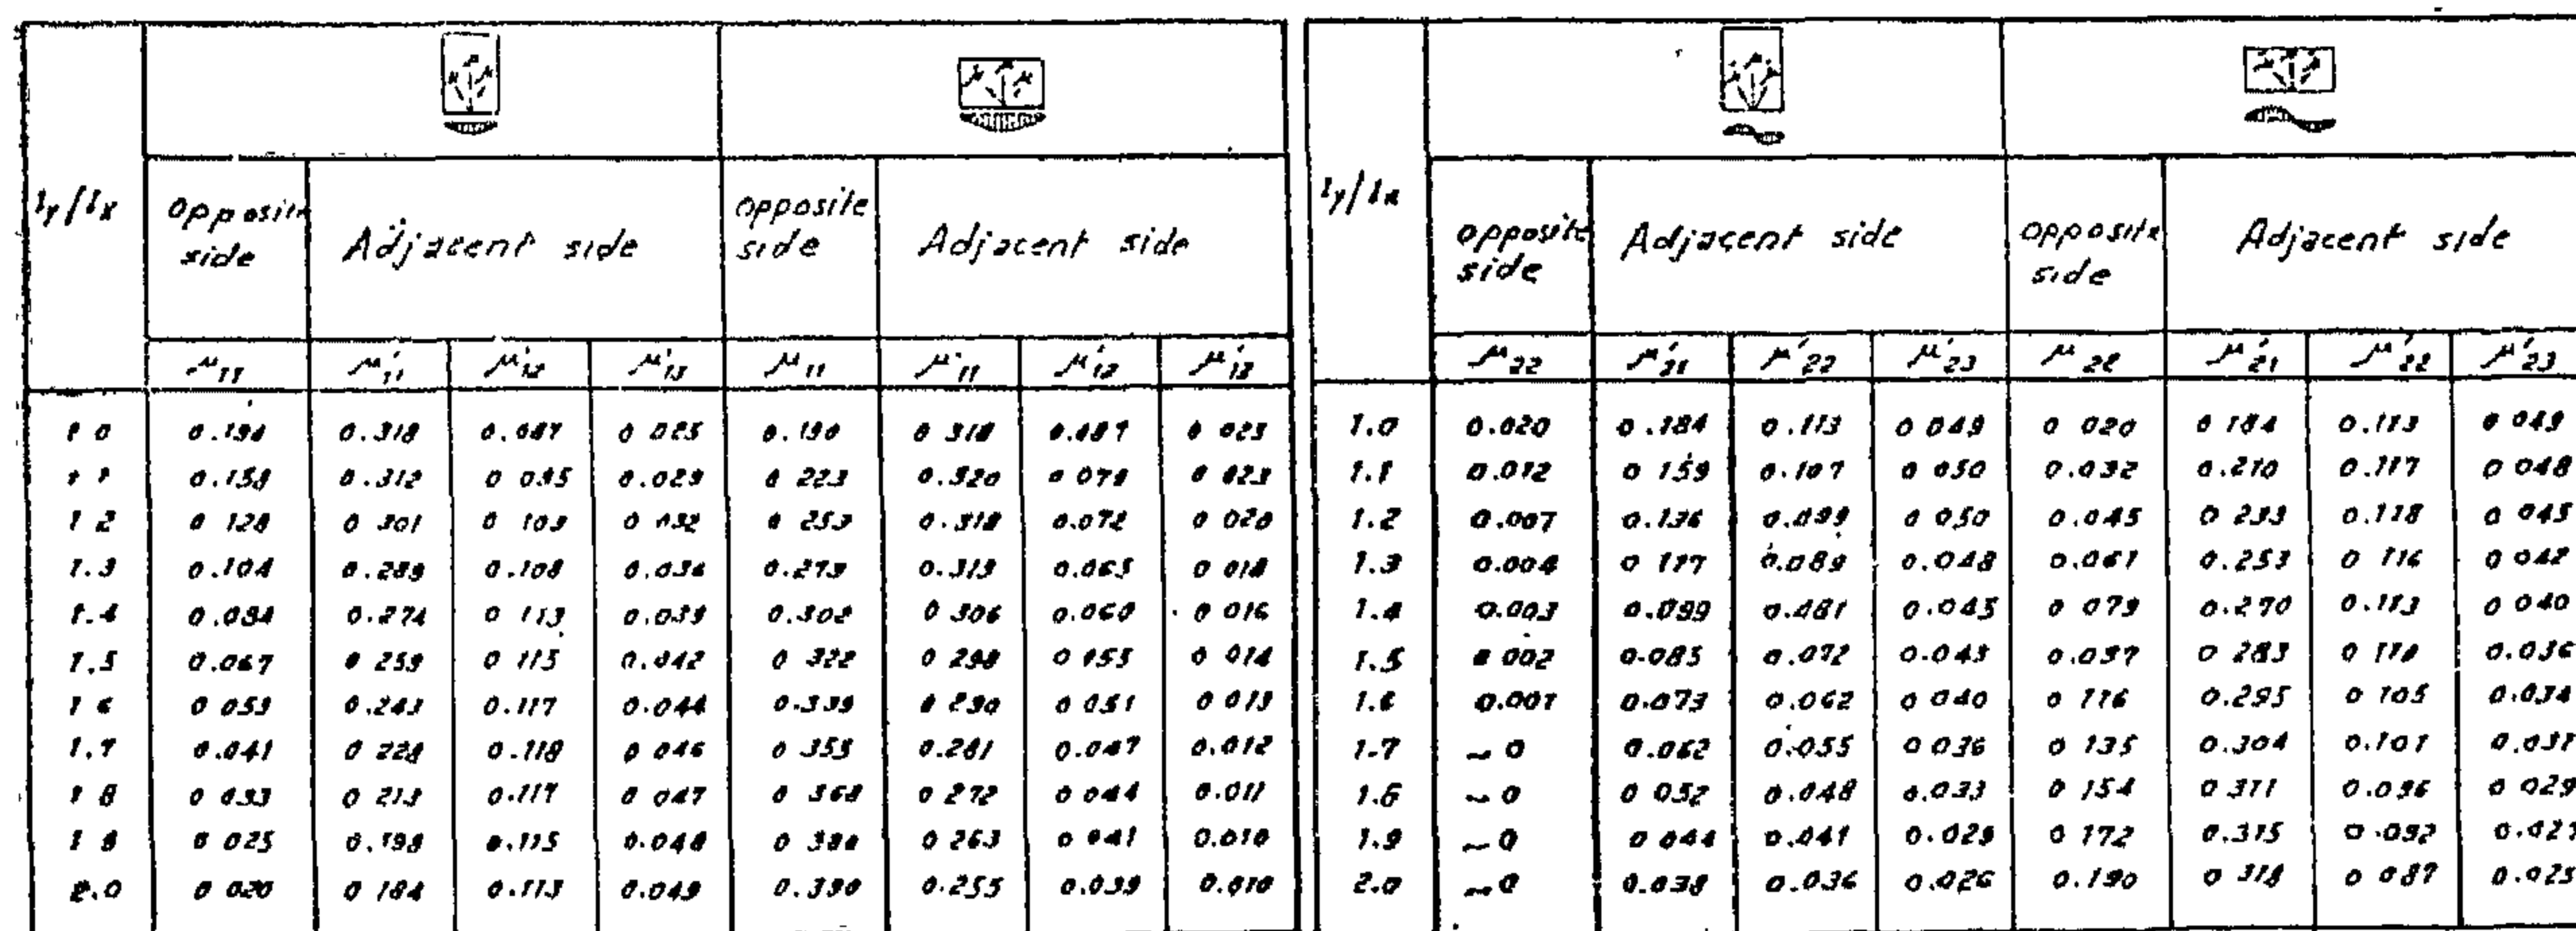 ly/lx opposite side Adjacent side opposite side Adjacent side
μ11 μ'11 μ'12 μ'13 μ11 μ'11 μ'12 μ'13
1 0 0.190 0.318 0.087 0 025 0.190 0 318 0.087 0 025
1 1 0.158 0.312 0 095 0.029 0 223 0.320 0 079 0 023
1 2 0 128 0 301 0 103 0 032 0 253 0.318 0.072 0 020
1.3 0.104 0.289 0.108 0.036 0.279 0.313 0.065 0 018
1.4 0.084 0.274 0 113 0.039 0.302 0 306 0.060 0 016
1.5 0.067 0 259 0 115 0.042 0 322 0 298 0 055 0 014
1 6 0 053 0.243 0.117 0.044 0.339 0 290 0 051 0 013
1.7 0.041 0 228 0.118 0 046 0 355 0.281 0.047 0.012
1 8 0 033 0 213 0.117 0 047 0 368 0 272 0 044 0.011
1 9 0 025 0.198 0.115 0.048 0 380 0 263 0 041 0.010
2.0 0 020 0 184 0.113 0.049 0.390 0.255 0.039 0.010
ly/lx opposite side Adjacent side opposite side Adjacent side
μ22 μ'21 μ'22 μ'23 μ22 μ'21 μ'22 μ'23
1.0 0.020 0.184 0.113 0 049 0 020 0 184 0.113 0 049
1.1 0.012 0 159 0.107 0 050 0.032 0.210 0.117 0 048
1.2 0.007 0.136 0.099 0 050 0.045 0 233 0.118 0 045
1.3 0.004 0 117 0.089 0.048 0.061 0.253 0 116 0 042
1.4 0.003 0.099 0.081 0.045 0 079 0.270 0.113 0 040
1.5 0 002 0.085 0.072 0.043 0.097 0 283 0 110 0.036
1.6 0.001 0.073 0.062 0 040 0 116 0.295 0 105 0.034
1.7 ~0 0.062 0.055 0 036 0 135 0.304 0.101 0.031
1.8 ~0 0 052 0.048 0.033 0 154 0 311 0.096 0 029
1.9 ~0 0 044 0.041 0.029 0 172 0.315 0.092 0.027
2.0 ~0 0.038 0.036 0.026 0.190 0 318 0 087 0.025